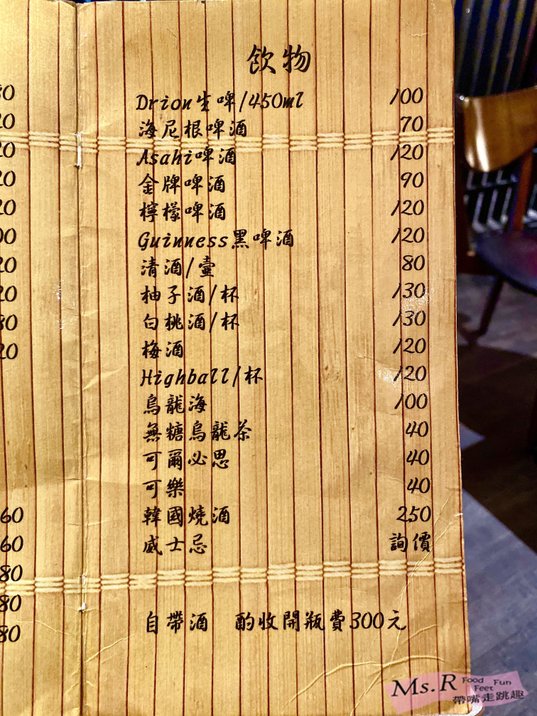 飲物
Drion生啤/450ml 100
海尼根啤酒 70
Asahi啤酒 120
金牌啤酒 90
檸檬啤酒 120
Guinness黑啤酒 120
清酒/壹 80
柚子酒/杯 130
白桃酒/杯 130
梅酒 120
Highball/杯 120
烏龍海 100
無糖烏龍茶 40
可爾必思 40
可樂 40
韓國燒酒 250
威士忌 詢價
自帶酒 酌收開瓶費300元
Ms.R Food Fun Feet
帶嘴走跳趣